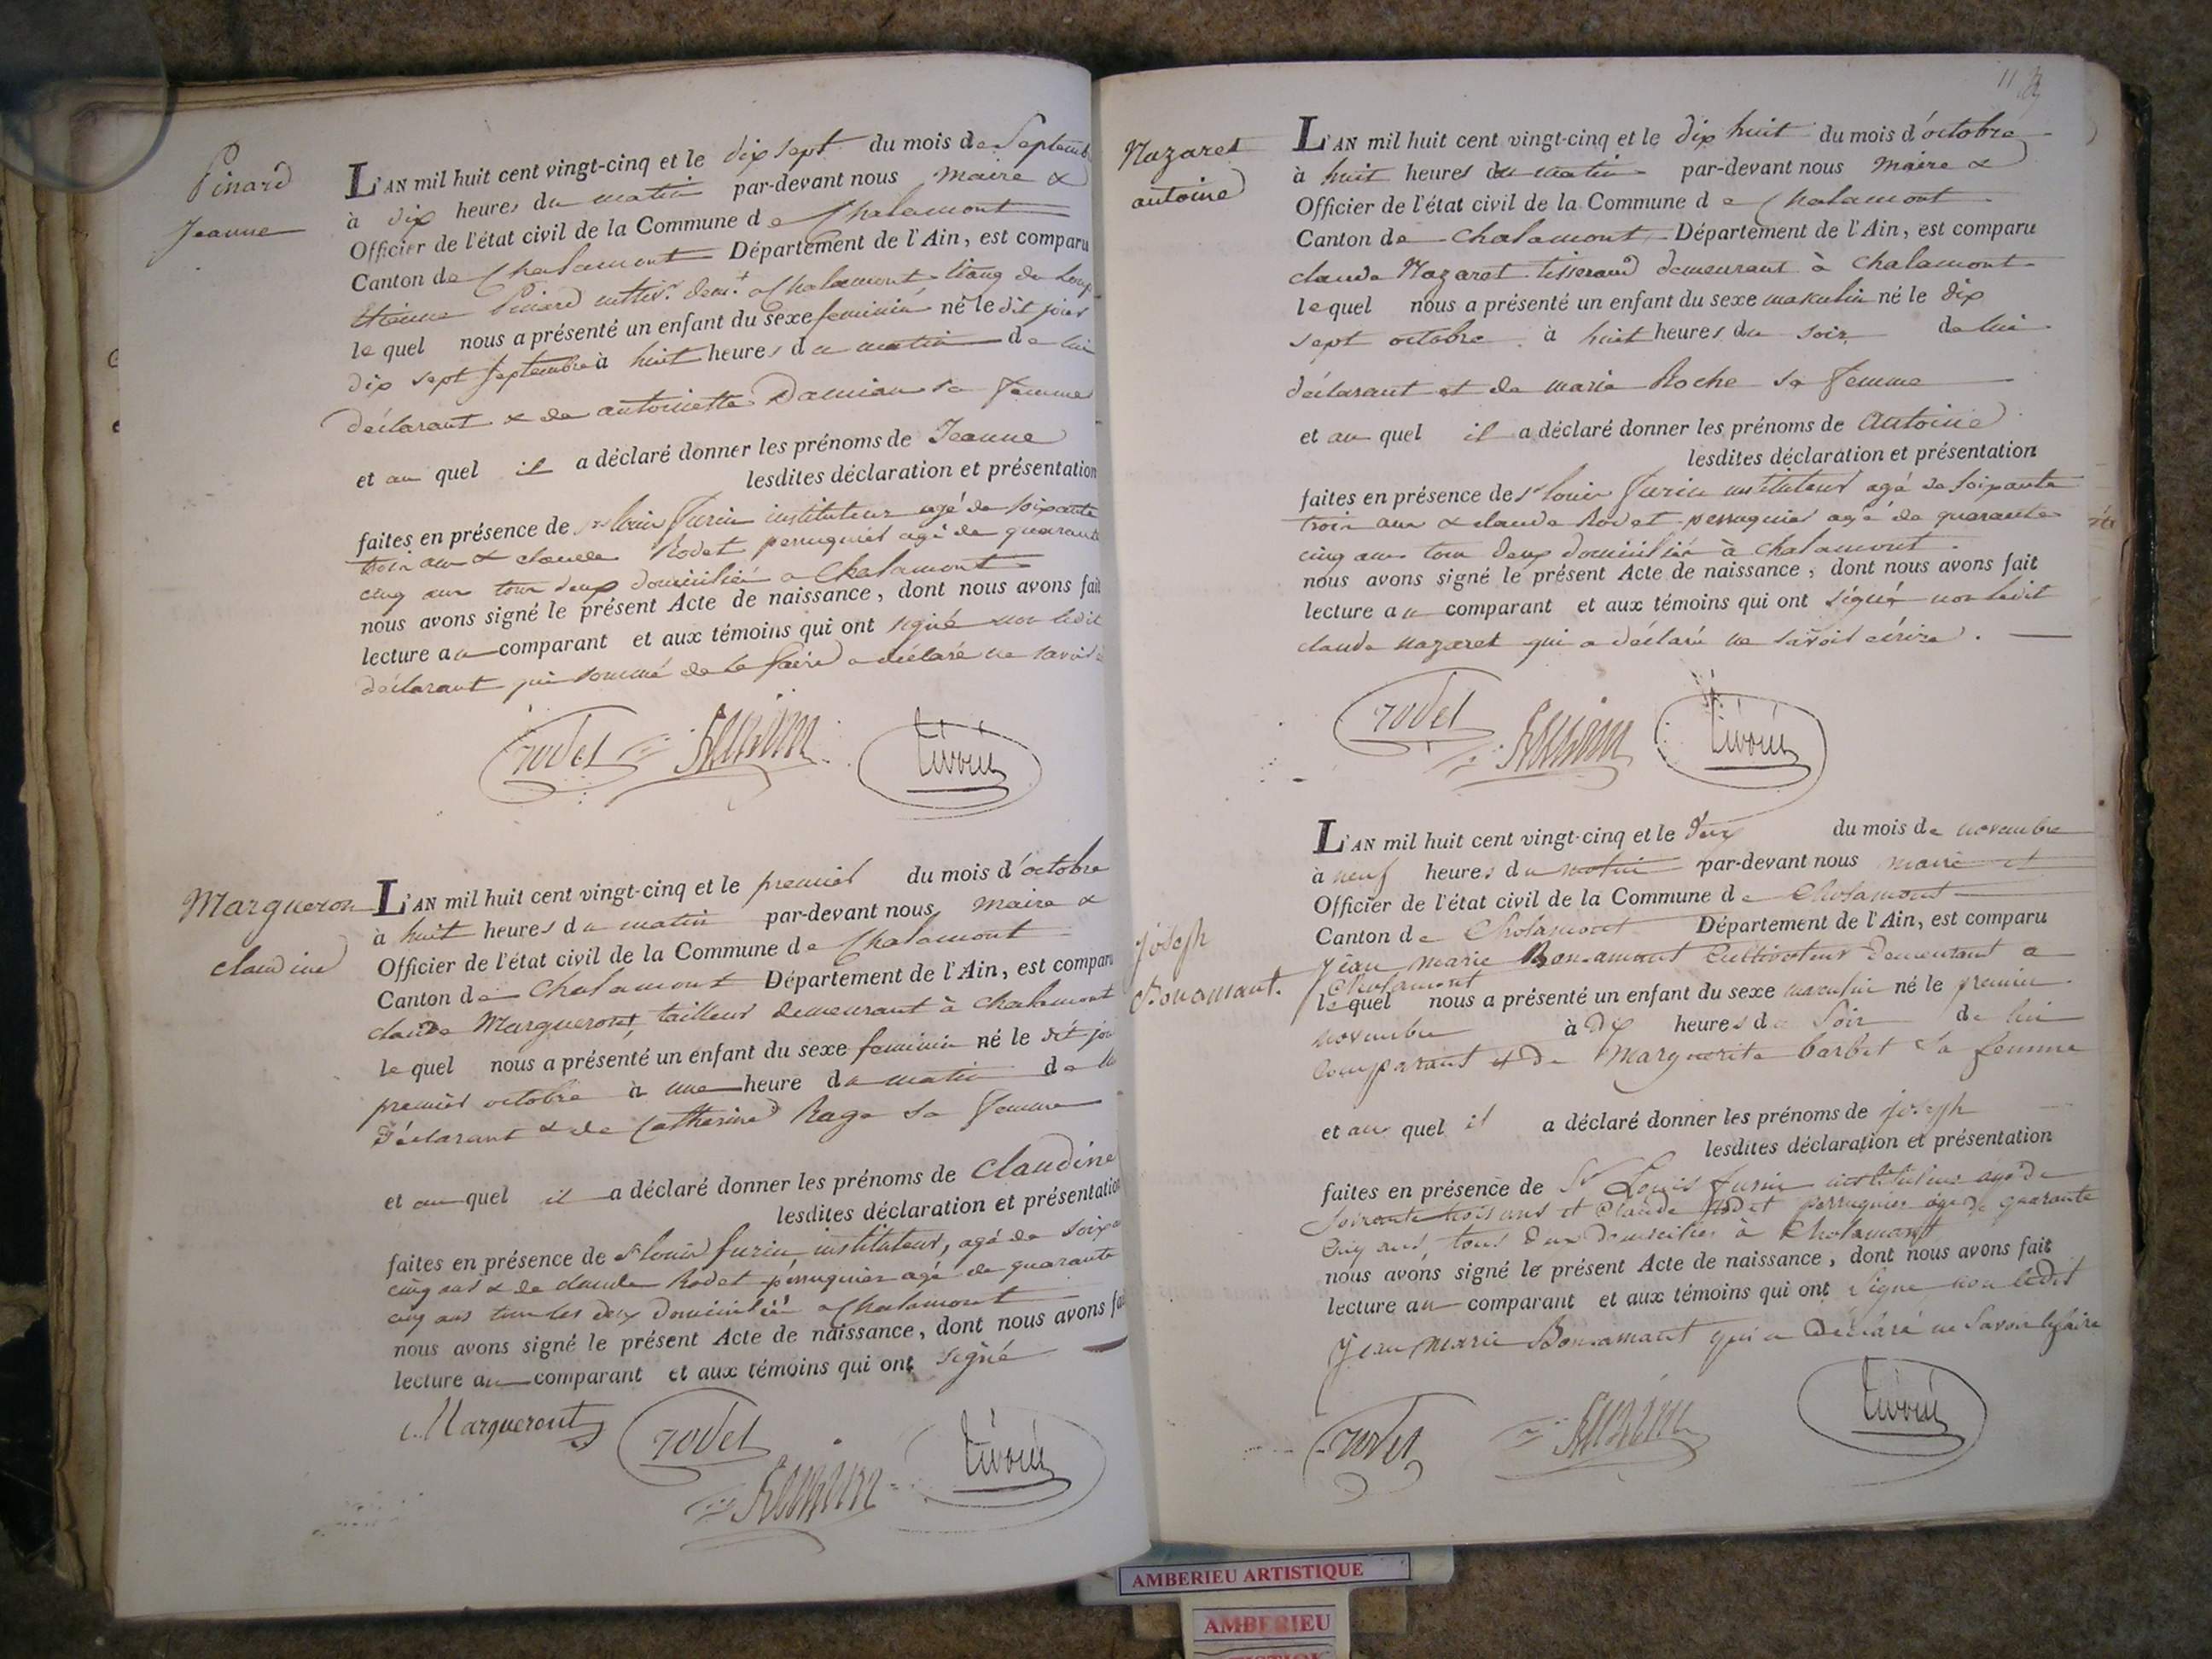 Pinard
Jeanne
L'AN mil huit cent vingt-cinq et le dix sept du mois de Septembre
à dix heures du matin par-devant nous maire &
Officier de l'état civil de la Commune de Chalamont
Canton de Chalamont Département de l'Ain, est comparu
Etienne Pinard demt a Chalamont etang du Loup
lequel nous a présenté un enfant du sexe feminin né le dit jour
dix sept Septembre à huit heures du matin de lui
déclarant & de antoinette Damian sa femme
et au quel il a déclaré donner les prénoms de Jeanne
lesdites déclaration et présentation
faites en présence de sr louis furin instituteur agé de soixante
trois ans & claude Rodet perruquier agé de quarante
cinq ans tous deux domiciliés a Chalamont
nous avons signé le présent Acte de naissance, dont nous avons fait
lecture au comparant et aux témoins qui ont signé non ledit
déclarant qui sommé de le faire a déclaré ne savoir
rodet furin tivoin
Margueron
claudine
L'AN mil huit cent vingt-cinq et le premier du mois d'octobre
à huit heures du matin par-devant nous maire &
Officier de l'état civil de la Commune de Chalamont
Canton de Chalamont Département de l'Ain, est comparu
claude Margueront, tailleur demeurant à chalamont
lequel nous a présenté un enfant du sexe feminin né le dit jour
premier octobre à une heure du matin de lui
déclarant & de Catherine Rage sa femme
et au quel il a déclaré donner les prénoms de Claudine
lesdites déclaration et présentation
faites en présence de sr louis furin instituteur, agé de soixante
cinq ans & de claude Rodet perruquier agé de quarante
cinq ans tous les deux domiciliés a Chalamont
nous avons signé le présent Acte de naissance, dont nous avons fait
lecture au comparant et aux témoins qui ont signé
Margueront rodet furin tivoin
11
Nazaret
antoine
L'AN mil huit cent vingt-cinq et le dix huit du mois d'octobre
à huit heures du matin par-devant nous maire &
Officier de l'état civil de la Commune de Chalamont
Canton de chalamont Département de l'Ain, est comparu
claude Nazaret tisserand demeurant à chalamont
lequel nous a présenté un enfant du sexe masculin né le dix
sept octobre à huit heures du soir de lui
déclarant et de marie Roche sa femme
et au quel il a déclaré donner les prénoms de Antoine
lesdites déclaration et présentation
faites en présence de sr louis furin instituteur agé de soixante
trois ans & claude Rodet perruquier agé de quarante
cinq ans tous deux domiciliés à chalamont
nous avons signé le présent Acte de naissance, dont nous avons fait
lecture au comparant et aux témoins qui ont signé non ledit
claude nazaret qui a déclaré ne savoir écrire.
rodet furin tivoin
joseph
Bonamant.
L'AN mil huit cent vingt-cinq et le deux du mois de novembre
à neuf heures du matin par-devant nous maire et
Officier de l'état civil de la Commune de Chalamont
Canton de Chalamont Département de l'Ain, est comparu
Jean marie Bonnamant Cultivateur demeurant a
Chalamont
lequel nous a présenté un enfant du sexe masculin né le premier
novembre à dix heures du soir de lui
comparant & de Marguerite barbet sa femme
et au quel il a déclaré donner les prénoms de joseph
lesdites déclaration et présentation
faites en présence de Sr Louis furin instituteur agé de
soixante trois ans et Claude Rodet perruquier agé de quarante
cinq ans, tous deux domiciliés à Chalamont
nous avons signé le présent Acte de naissance, dont nous avons fait
lecture au comparant et aux témoins qui ont signé non ledit
Jean marie Bonnamant qui a déclaré ne savoir le faire
rodet furin tivoin
AMBERIEU ARTISTIQUE
AMBERIEU